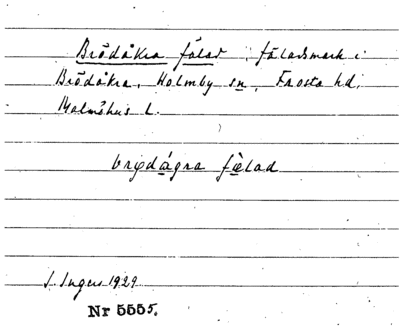 Brödåkra fälad, fäladsmark i
Brödåkra, Holmby sn, Frosta hd,
Malmöhus l.
brødågra fælad
I. Ingers 1929
Nr 5555.